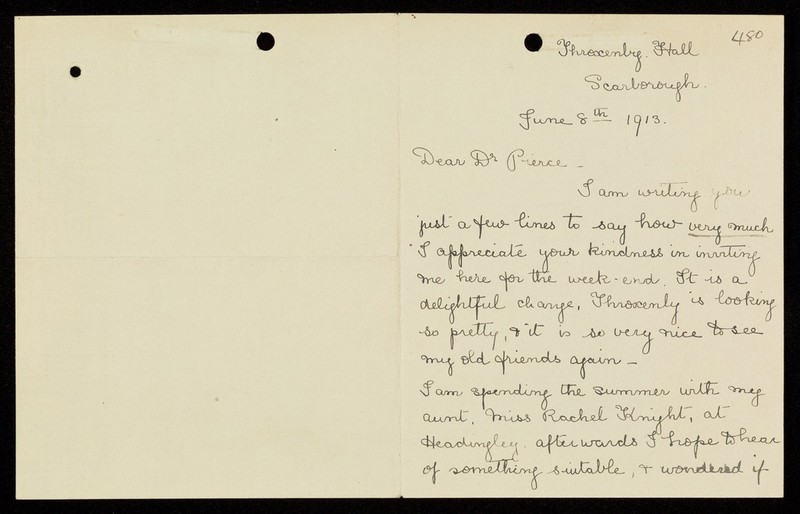 480
Throxenby. Hall
Scarborough.
June 8th 1913.
Dear Dr Pierce -
I am writing you
just a few lines to say how very much
I appreciate your kindness in inviting
me here for the week-end. It is a
delightful change, Throxenby is looking
so pretty, & it is so very nice to see
my old friends again -
I am spending the summer with my
aunt, Miss Rachel Knight, at
Headingley. afterwards I hope to hear
of something suitable, & wondered if